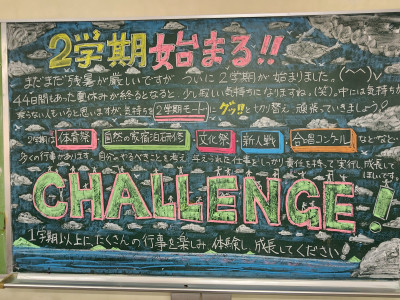 2学期始まる!!
まだまだ残暑が厳しいですが ついに2学期が始まりました。(^^)v
44日間もあった夏休みが終るとなると 少し寂しい気持ちになりますね。(笑)。中には気持ちが
乗らない人もいると思いますが、気持ちを 2学期モードに グッ!!と切り替え、頑張っていきましょう♪
2学期は 体育祭 自然の家宿泊研修 文化祭 新人戦 合唱コンクール などなど
多くの行事があります。自分のやるべきことを考え 与えられた仕事をしっかり責任を持って 実行し 成長して
ほしいです。
CHALLENGE!
1学期以上に、たくさんの行事を楽しみ、体験し、成長してください!